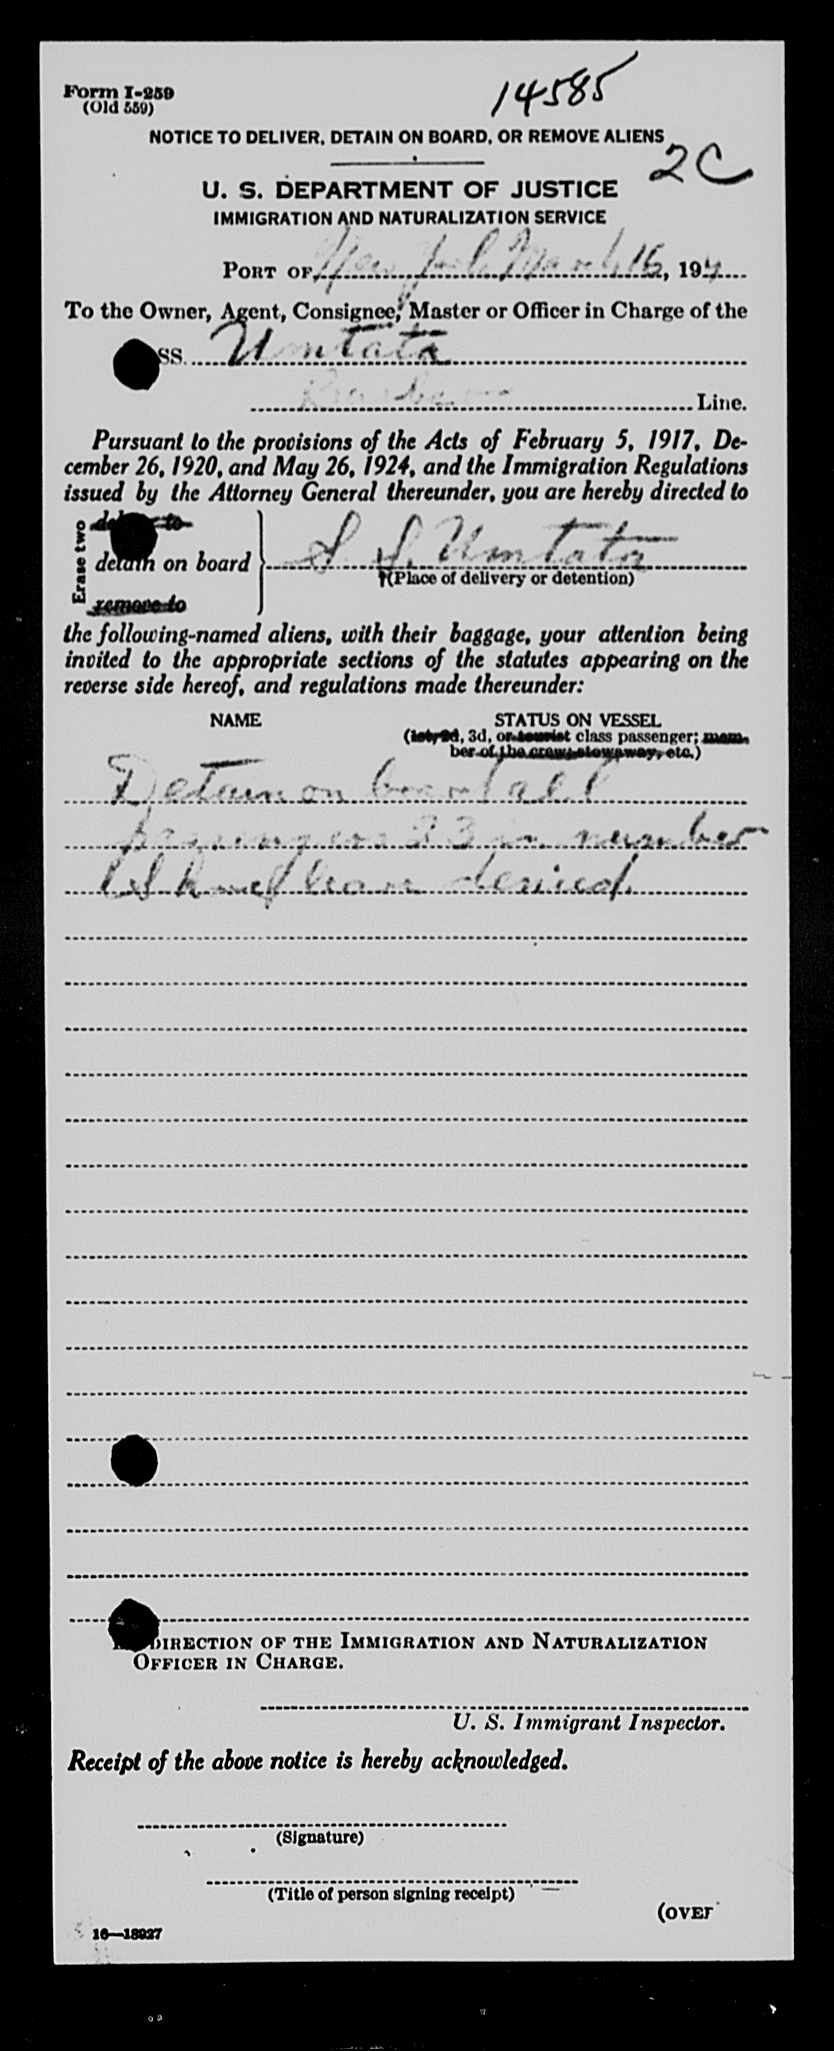 Form I-259
(Old 559)
14585
NOTICE TO DELIVER, DETAIN ON BOARD, OR REMOVE ALIENS
2C
U. S. DEPARTMENT OF JUSTICE
IMMIGRATION AND NATURALIZATION SERVICE
PORT OF New York March 16, 194
To the Owner, Agent, Consignee, Master or Officer in Charge of the
SS. Umtata
Line.
Pursuant to the provisions of the Acts of February 5, 1917, De-
cember 26, 1920, and May 26, 1924, and the Immigration Regulations
issued by the Attorney General thereunder, you are hereby directed to
Erase two
deliver to
detain on board
remove to
S S. Umtata
(Place of delivery or detention)
the following-named aliens, with their baggage, your attention being
invited to the appropriate sections of the statutes appearing on the
reverse side hereof, and regulations made thereunder:
NAME
STATUS ON VESSEL
(1st, 2d, 3d, or tourist class passenger; mem-
ber of the crew, stowaway, etc.)
Detain on board all
passengers 33 in number
leave denied.
DIRECTION OF THE IMMIGRATION AND NATURALIZATION
OFFICER IN CHARGE.
U. S. Immigrant Inspector.
Receipt of the above notice is hereby acknowledged.
(Signature)
(Title of person signing receipt)
(OVER
16—18927